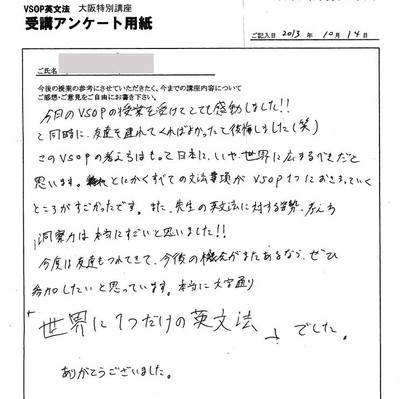 VSOP英文法 大阪特別講座
受講アンケート用紙
ご記入日 2013 年 10 月 14 日
ご氏名
今後の授業の参考にさせていただきたく、今までの講座内容について
ご感想・ご意見をご自由にお書き下さい。
今日のVSOPの授業を受けてとても感動しました!!
と同時に、友達を連れてくればよかったと後悔しました(笑)
このVSOPの考え方はもって日本に、いや、世界に広まるべきだと
思います。とにかくすべての文法事項がVSOP1つにおさまっていく
ところがすごかったです。また、先生の英文法に対する姿勢、考え方
洞察力は本当にすごいと思いました!!
今度は友達もつれてきて、今後の機会がまたあるなら、ぜひ
参加したいと思っています。本当に文字通り
「世界に1つだけの英文法」でした。
ありがとうございました。